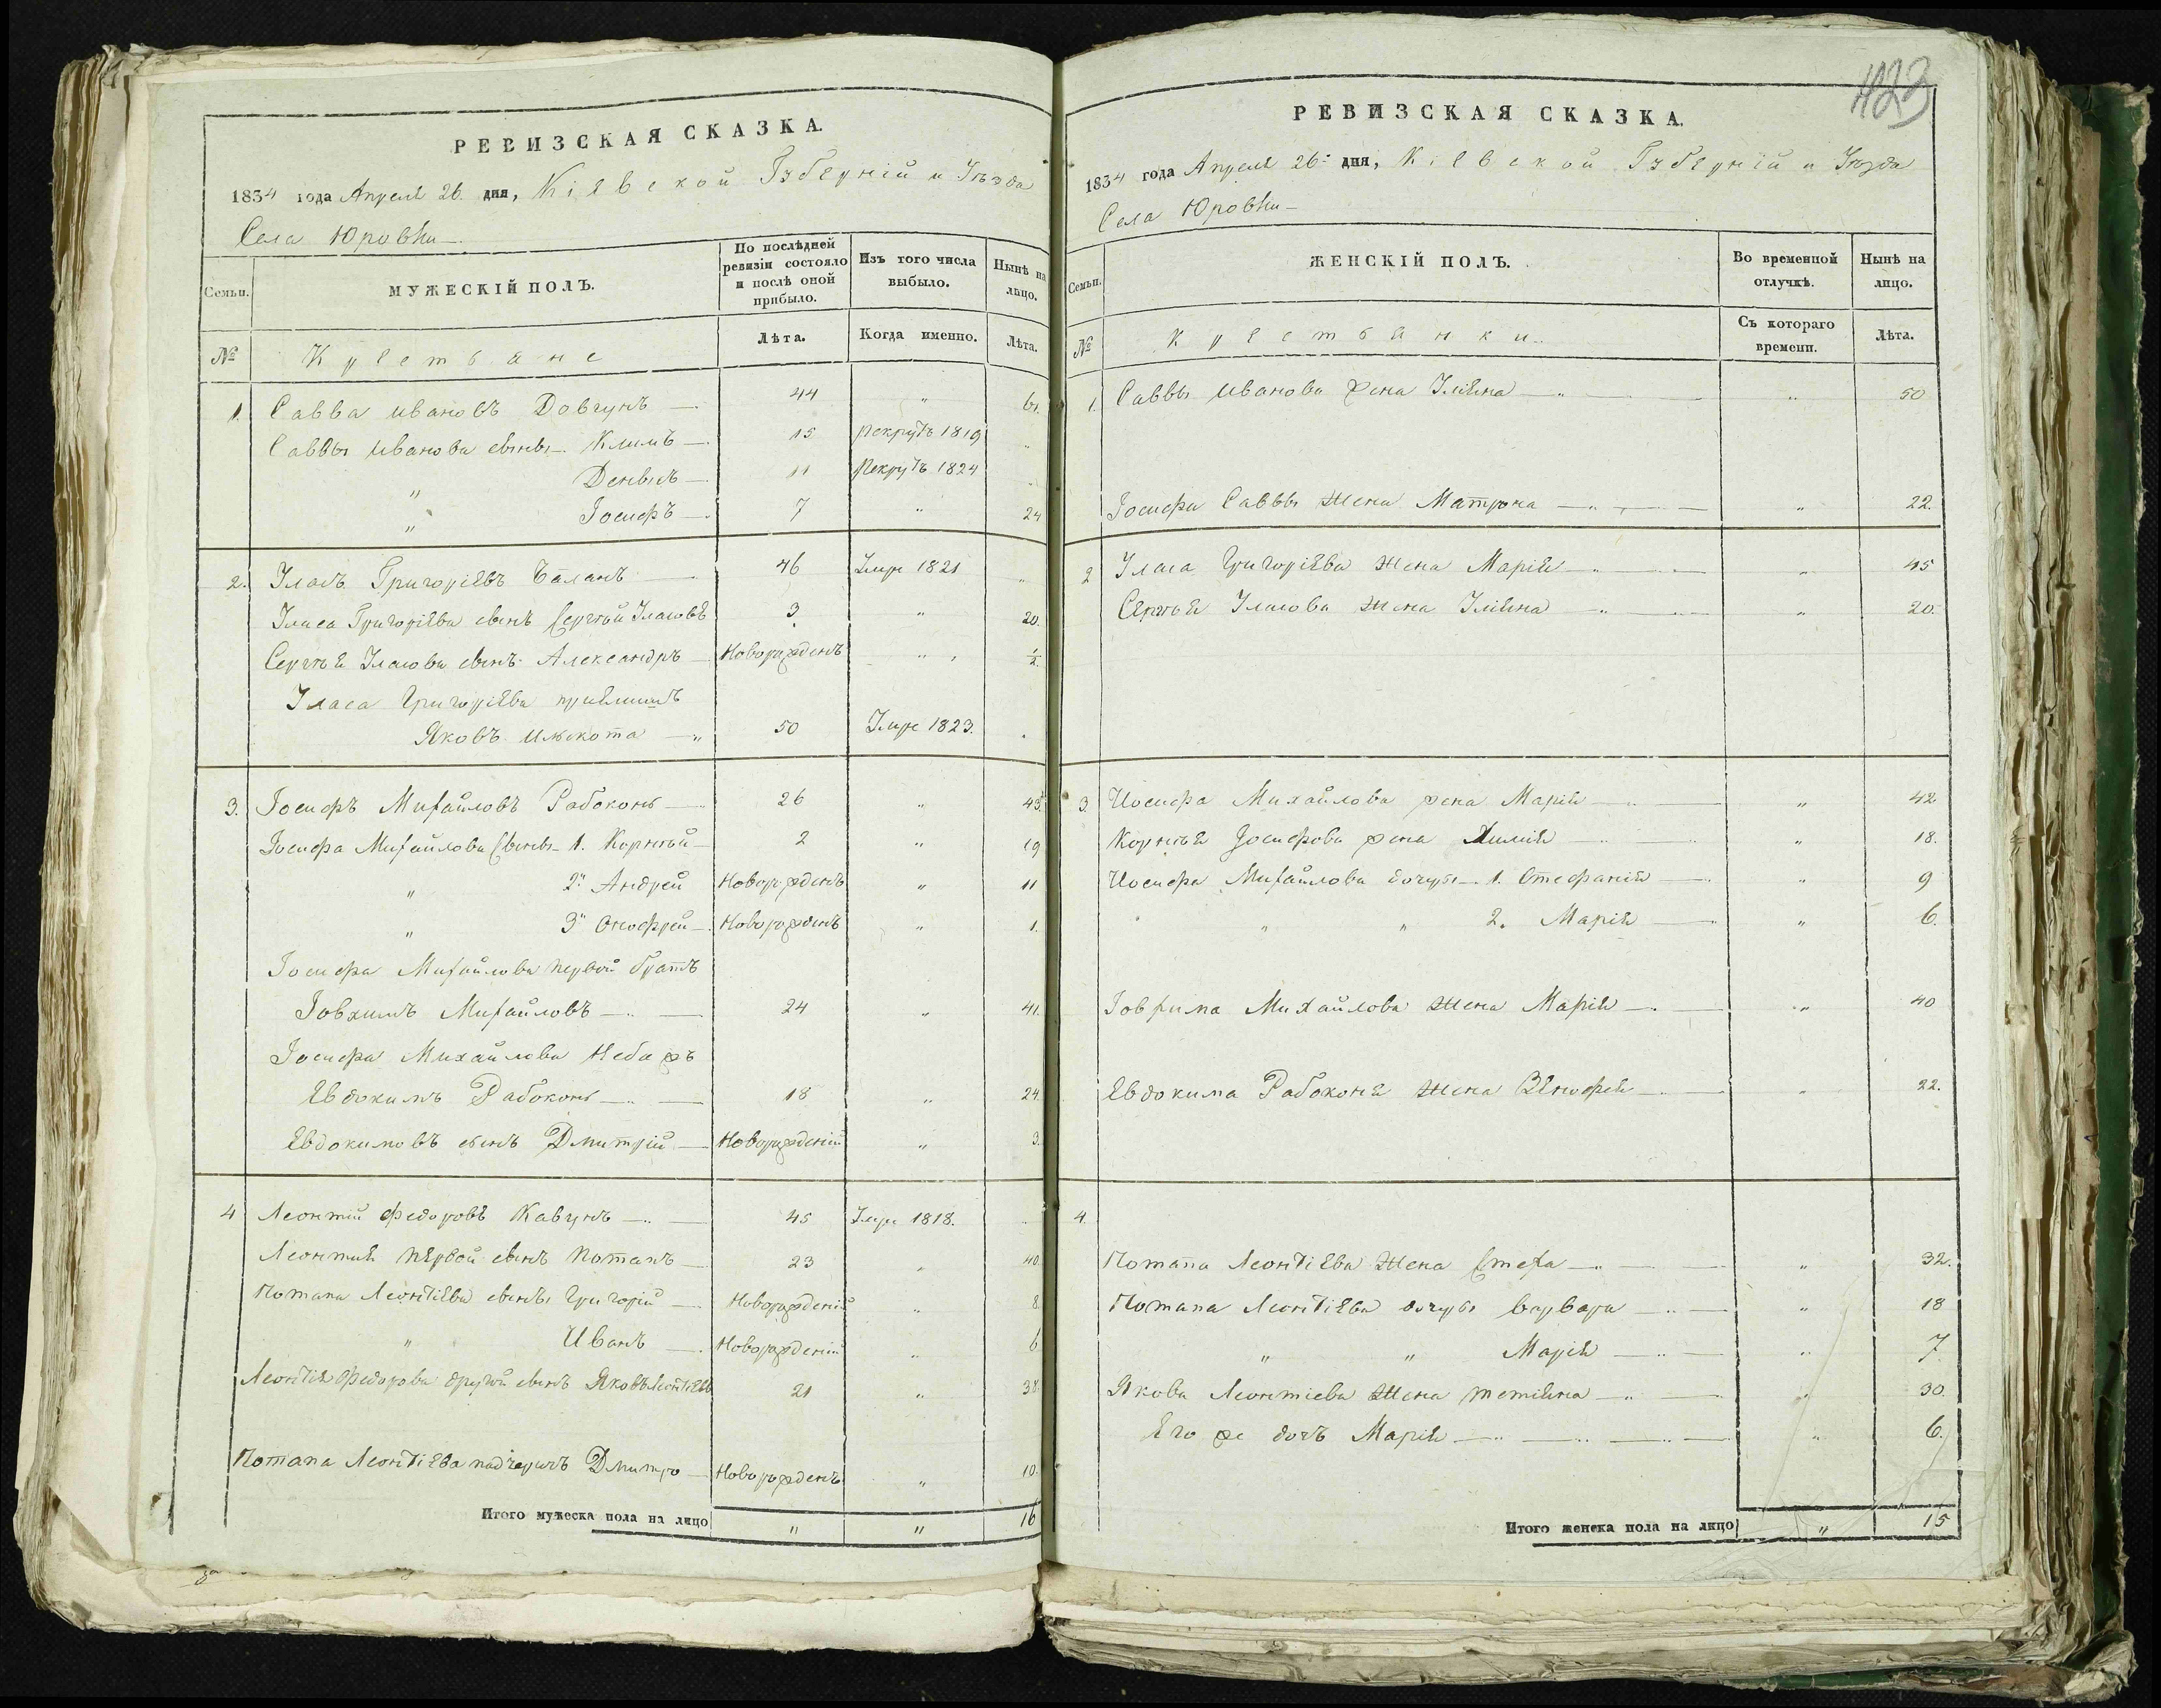 РЕВИЗСКАЯ СКАЗКА.
1834 года Апреля 26. дня, Кіевской Губерніи и Уѣзда
Села Юровки
Семьи.
МУЖЕСКІЙ ПОЛЪ.
По послѣдней ревизіи состояло и послѣ оной прибыло.
Изъ того числа выбыло.
Нынѣ на лицо.
№
Крестьяне
Лѣта.
Когда именно.
Лѣта.
1. Савва Ивановъ Довгунъ — 44 " 61.
Саввы Иванова сыны — Климъ — 15 рекрутъ 1819 "
" — 11 Рекрутъ 1824
" Іосифъ — 7 " 24
2. Власъ Григоріевъ Баланъ — 46 Умре 1821 "
Власа Григоріева сынъ Сергѣй Власовъ 3 " 20.
Сергѣя Власова сынъ Александръ — Новорожденъ " 1/2.
Власа Григоріева
Яковъ — " 50 Умре 1823.
3. Іосифъ Михайловъ Рабоконь — 26 " 43.
Іосифа Михайлова Сыны — 1. Корнѣй — 2 " 19
" 2й Андрей Новорожденъ " 11
" 3й Онофрей — Новорожденъ " 1.
Іосифа Михайлова первой братъ
Іовхимъ Михайловъ — 24 " 41.
Іосифа Михайлова Небожъ
Евдокимъ Рабоконь — 18 " 24.
Евдокимовъ сынъ Дмитрій — Новорожденій " 3.
4 Леонтій Федоровъ Кавунъ — 45 Умре 1818. "
Леонтія первой сынъ Потапъ — 23 " 40.
Потапа Леонтіева сыны Григорій — Новорожденій " 8.
" Иванъ — Новорожденій " 6
Леонтія Федорова другой сынъ Яковъ Леонтіевъ 21 " 38.
Потапа Леонтіева Дмитро — Новорожденъ " 10.
Итого мужеска пола на лицо " " 16
423
РЕВИЗСКАЯ СКАЗКА.
1834 года Апреля 26: дня, Кіевской Губерніи и Уѣзда
Села Юровки —
Семьи.
ЖЕНСКІЙ ПОЛЪ.
Во временной отлучкѣ.
Нынѣ на лицо.
№
Крестьянки.
Съ котораго времени.
Лѣта.
1. Саввы Иванова жена Уліяна — " 50
Іосифа Саввы жена Матрона — " 22.
2 Власа Григоріева жена Марія — " 45
Сергѣя Власова жена Уліяна — " 20.
3. Иосифа Михайлова жена Марія — " 42
Корнѣя Іосифова жена — " 18.
Иосифа Михайлова дочери — 1. Стефанія — " 9
" " " 2. Марія — " 6.
Іовхима Михайлова жена Марія — " 40
Евдокима Рабоконя жена — " 22.
4.
Потапа Леонтіева жена Стеха — " 32.
Потапа Леонтіева дочери Варвара — " 18
" " Марія — " 7
Якова Леонтіева жена Тетіяна — " 30.
Его же дочъ Марія — " 6.
Итого женска пола на лицо " 15